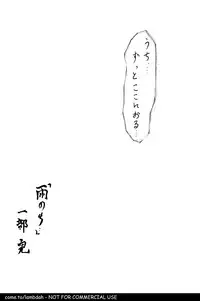 うち…
ずっとここにおる…
「雨のち」
一部 完
come.to/lambdah - NOT FOR COMMERCIAL USE